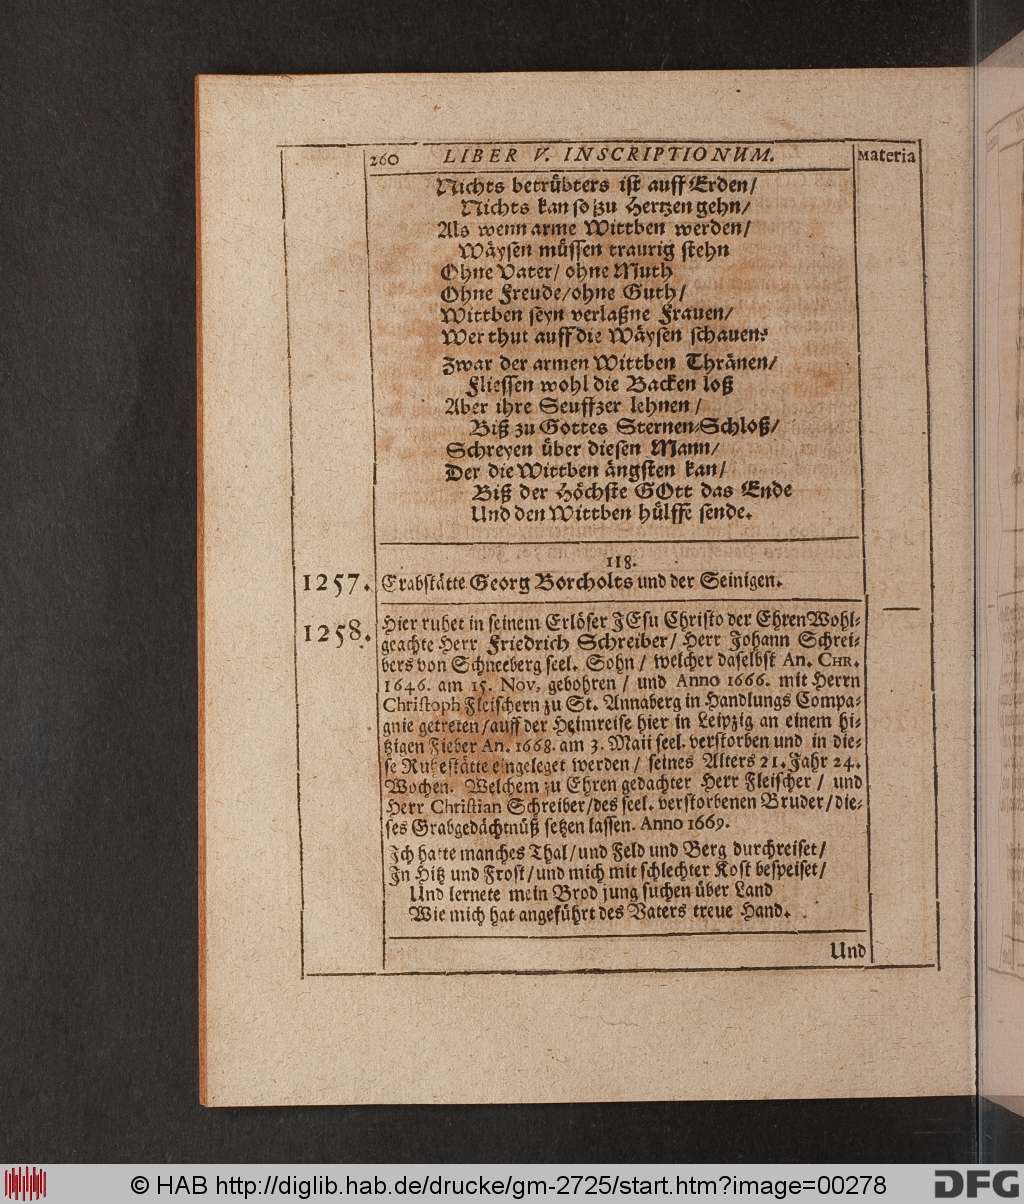 260 LIBER V. INSCRIPTIONUM. Materia
Nichts betrübters ist auff Erden/
Nichts kan so zu Hertzen gehn/
Als wenn arme Wittben werden/
Wäysen müssen traurig stehn
Ohne Vater/ ohne Muth
Ohne Freude/ohne Guth/
Wittben seyn verlaßne Frauen/
Wer thut auff die Wäysen schauen?
Zwar der armen Wittben Thränen/
Fliessen wohl die Backen loß
Aber ihre Seuffzer lehnen/
Biß zu Gottes Sternen-Schloß/
Schreyen über diesen Mann/
Der die Wittben ängsten kan/
Biß der Höchste GOtt das Ende
Und den Wittben hülffe sende.
118.
1257. Erabstätte Georg Borcholts und der Seinigen.
1258. Hier ruhet in seinem Erlöser JEsu Christo der EhrenWohl-
geachte Herr Friedrich Schreiber/ Herr Johann Schrei-
bers von Schneeberg seel. Sohn/ welcher daselbst An. CHR.
1646. am 15. Nov. gebohren/ und Anno 1666. mit Herrn
Christoph Fleischern zu St. Annaberg in Handlungs Compa-
gnie getreten/auff der Heimreise hier in Leipzig an einem hi-
tzigen Fieber An. 1668. am 3. Maii seel. verstorben und in die-
se Ruhestätte eingeleget werden/ seines Alters 21. Jahr 24.
Wochen. Welchem zu Ehren gedachter Herr Fleischer/ und
Herr Christian Schreiber/des seel. verstorbenen Bruder/die-
ses Grabgedächtnüß setzen lassen. Anno 1669.
Ich hatte manches Thal/und Feld und Berg durchreiset/
In Hitz und Frost/und mich mit schlechter Kost bespeiset/
Und lernete mein Brod jung suchen über Land
Wie mich hat angeführt des Vaters treue Hand.
Und
© HAB http://diglib.hab.de/drucke/gm-2725/start.htm?image=00278
DFG